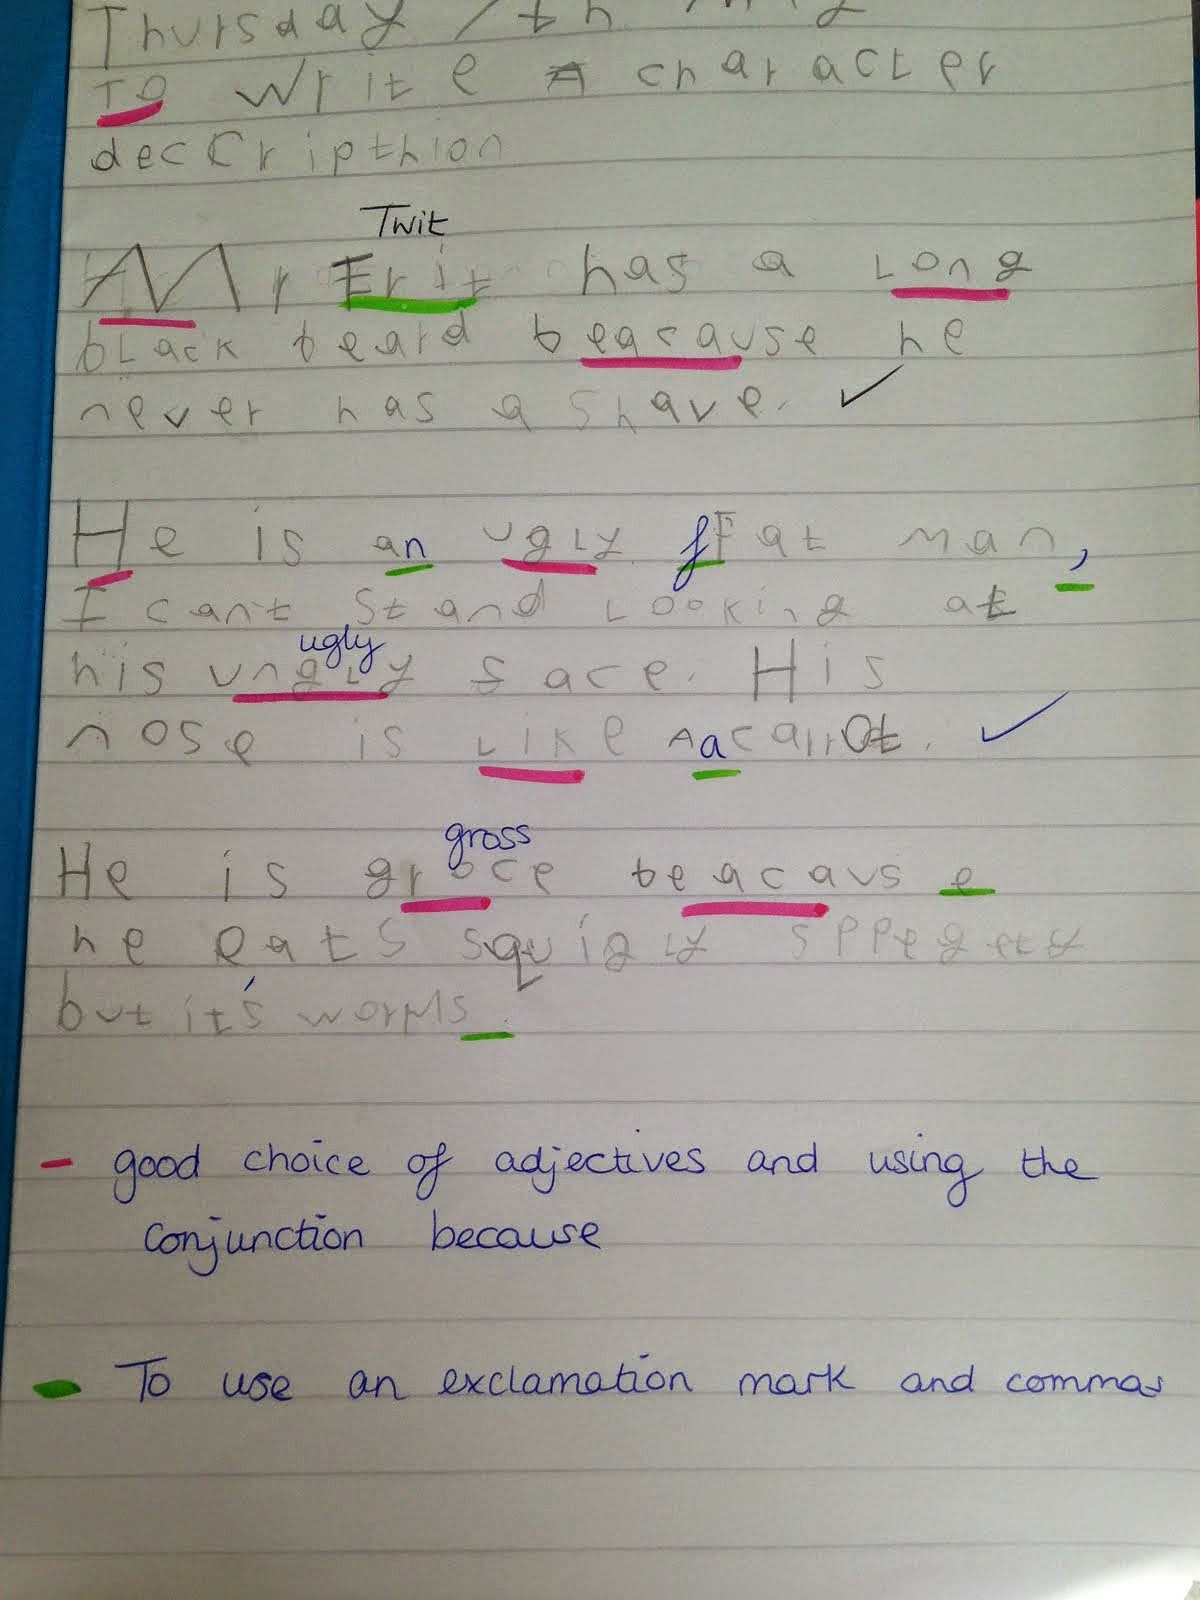 Thursday 7th May
To write A character
decCripthion
Twit
Mr Erit has a Long
bLack beard beacause he
never has a shave. ✓
He is an ugLy fFat man,
I can't stand Looking at
ugly
his ungLy face. His
nose is Like A a carrot. ✓
gross
He is groce beacause
he eats squigLy sppegety
but it's worMs.
- good choice of adjectives and using the
conjunction because
- To use an exclamation mark and commas